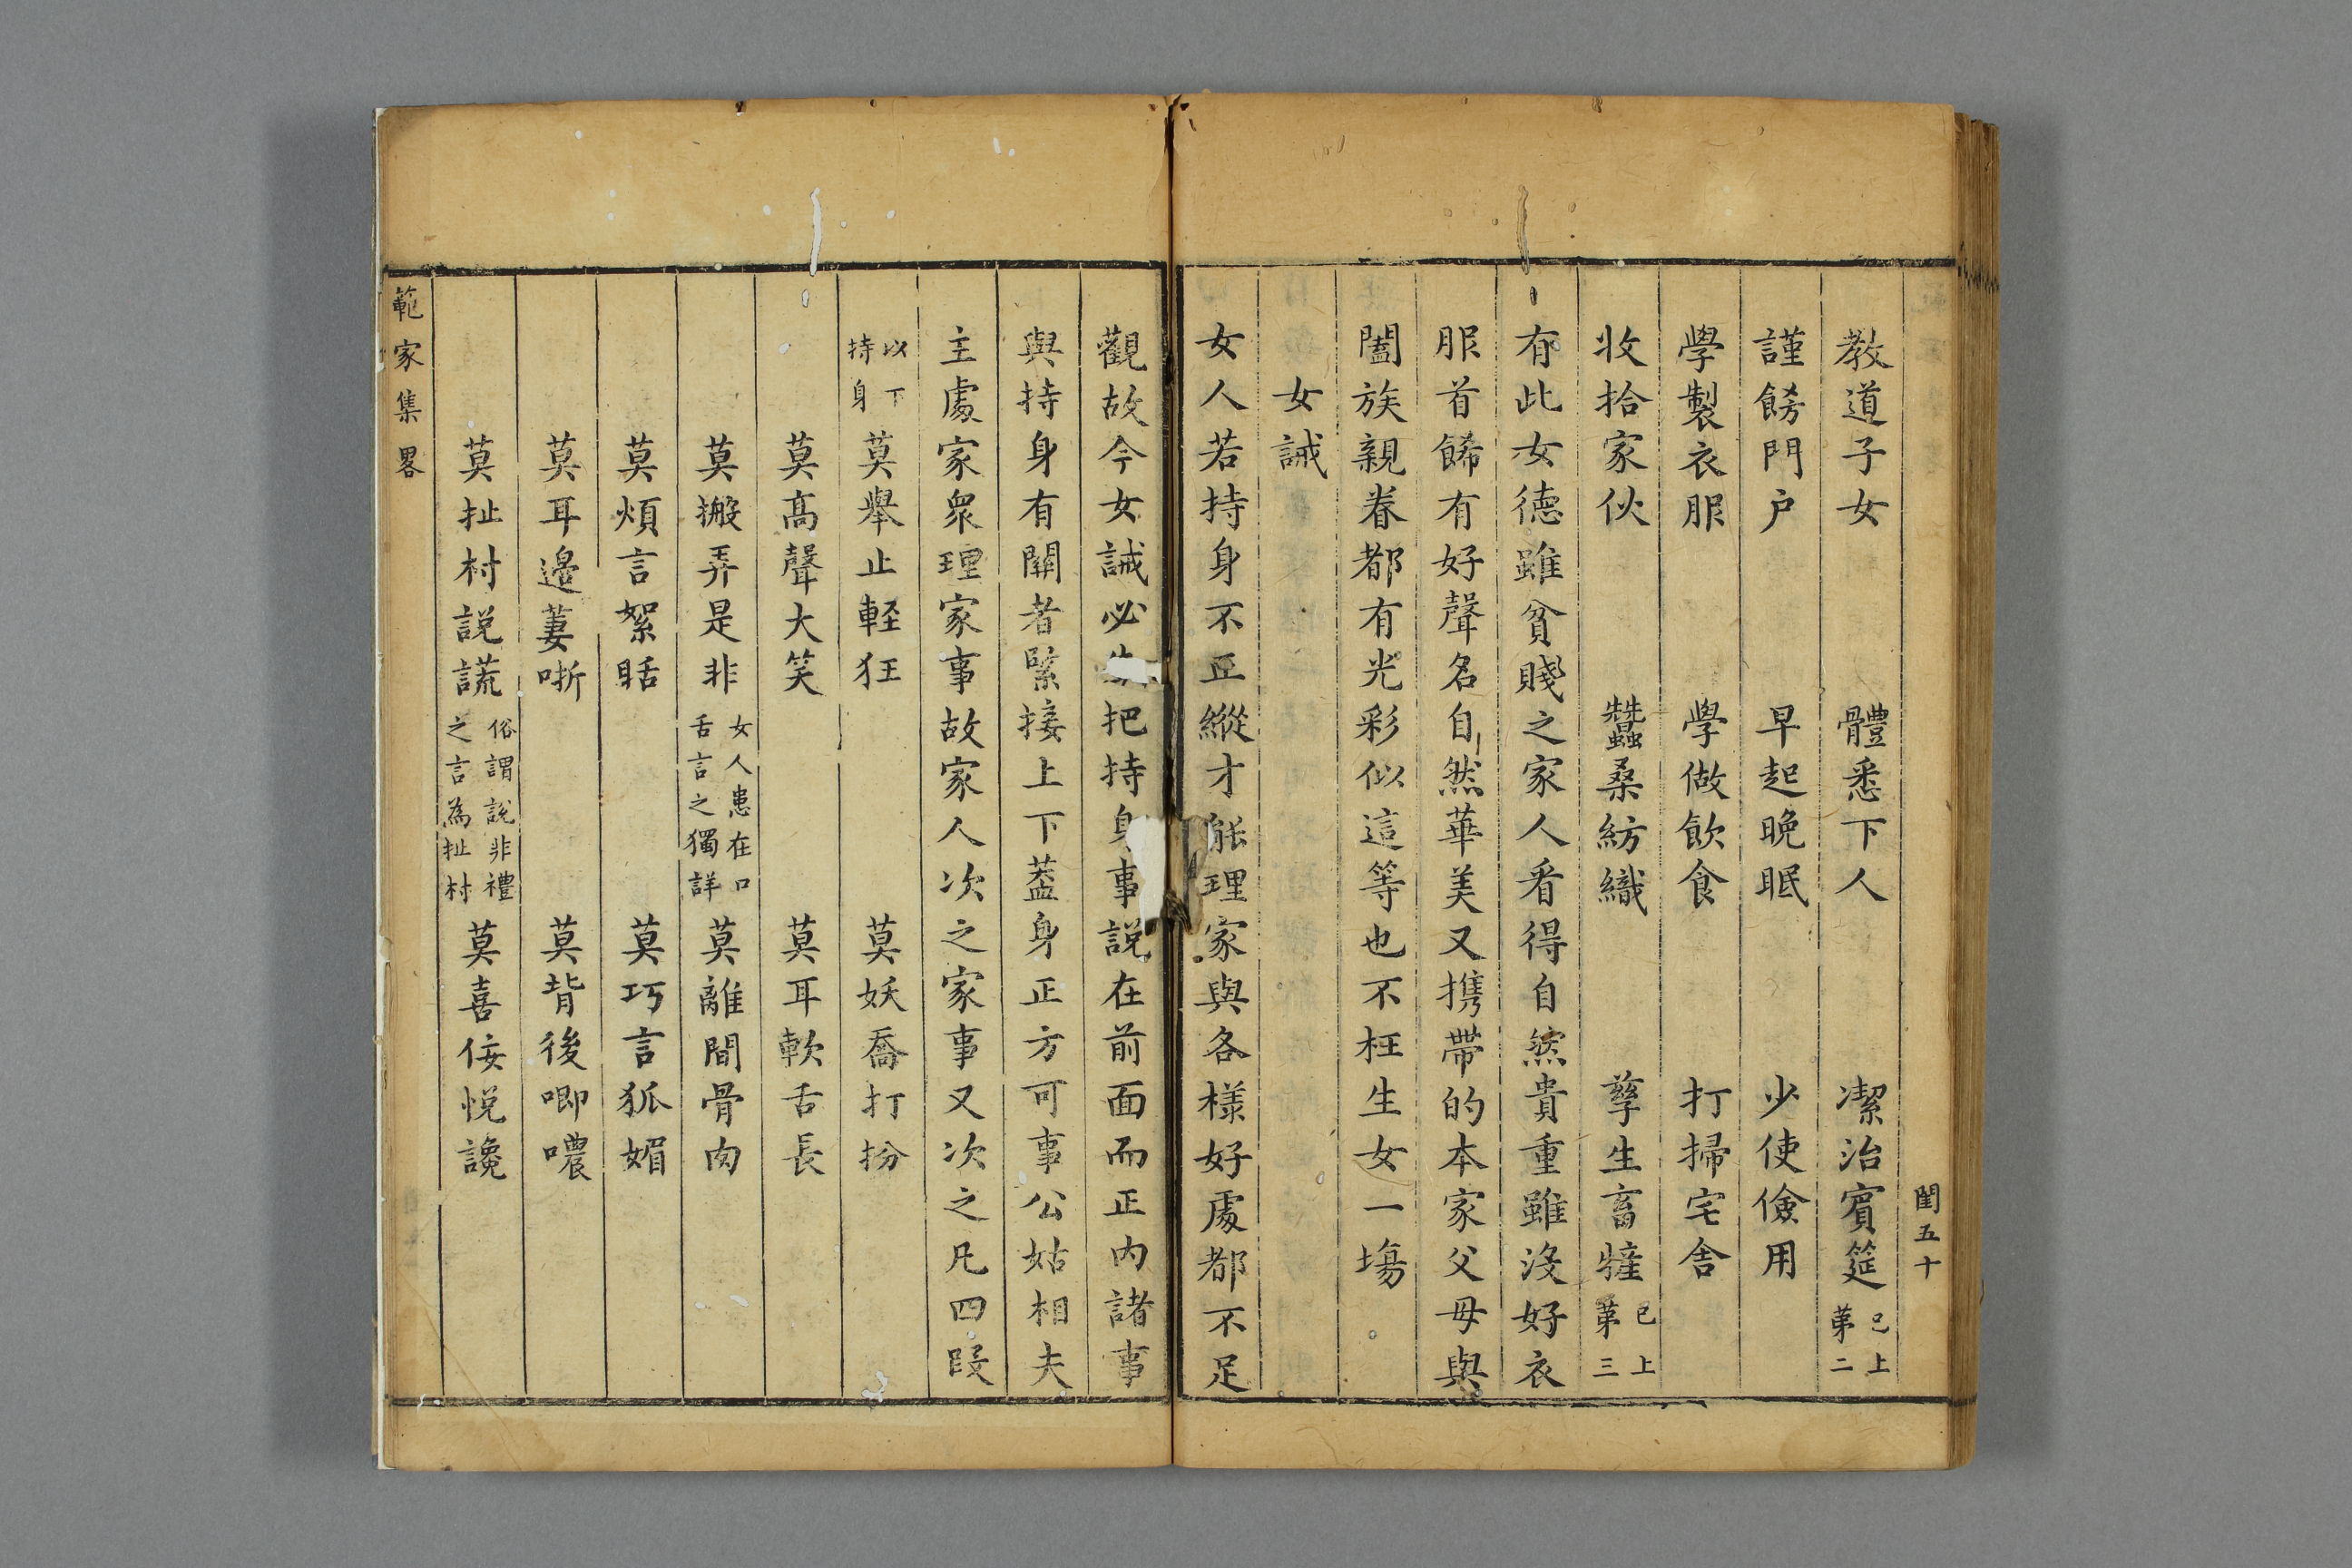 閨五十
教道子女　體悉下人　潔治賓筵已上第二
謹餝門户　早起晚眠　少使儉用
學製衣服　學做飲食　打掃宅舍
收拾家伙　蠶桑紡織　孳生畜㹌已上第三
有此女德雖貧賤之家人看得自然貴重雖沒好衣
服首餙有好聲名自然華美又携帶的本家父母與
闔族親眷都有光彩似這等也不枉生女一塲
女誡
女人若持身不正縱才能理家與各様好處都不足
觀故今女誡必先把持身事説在前面而正内諸事
與持身有關者緊接上下葢身正方可事公姑相夫
主處家衆理家事故家人次之家事又次之凡四段
以下持身莫舉止輕狂　莫妖喬打扮
莫高聲大笑　莫耳軟舌長
莫搬弄是非女人患在口舌言之獨詳　莫離間骨肉
莫煩言絮聒　莫巧言狐媚
莫耳邉萋哳　莫背後唧噥
莫扯村説謊俗謂説非禮之言為扯村　莫喜佞悦讒
範家集畧